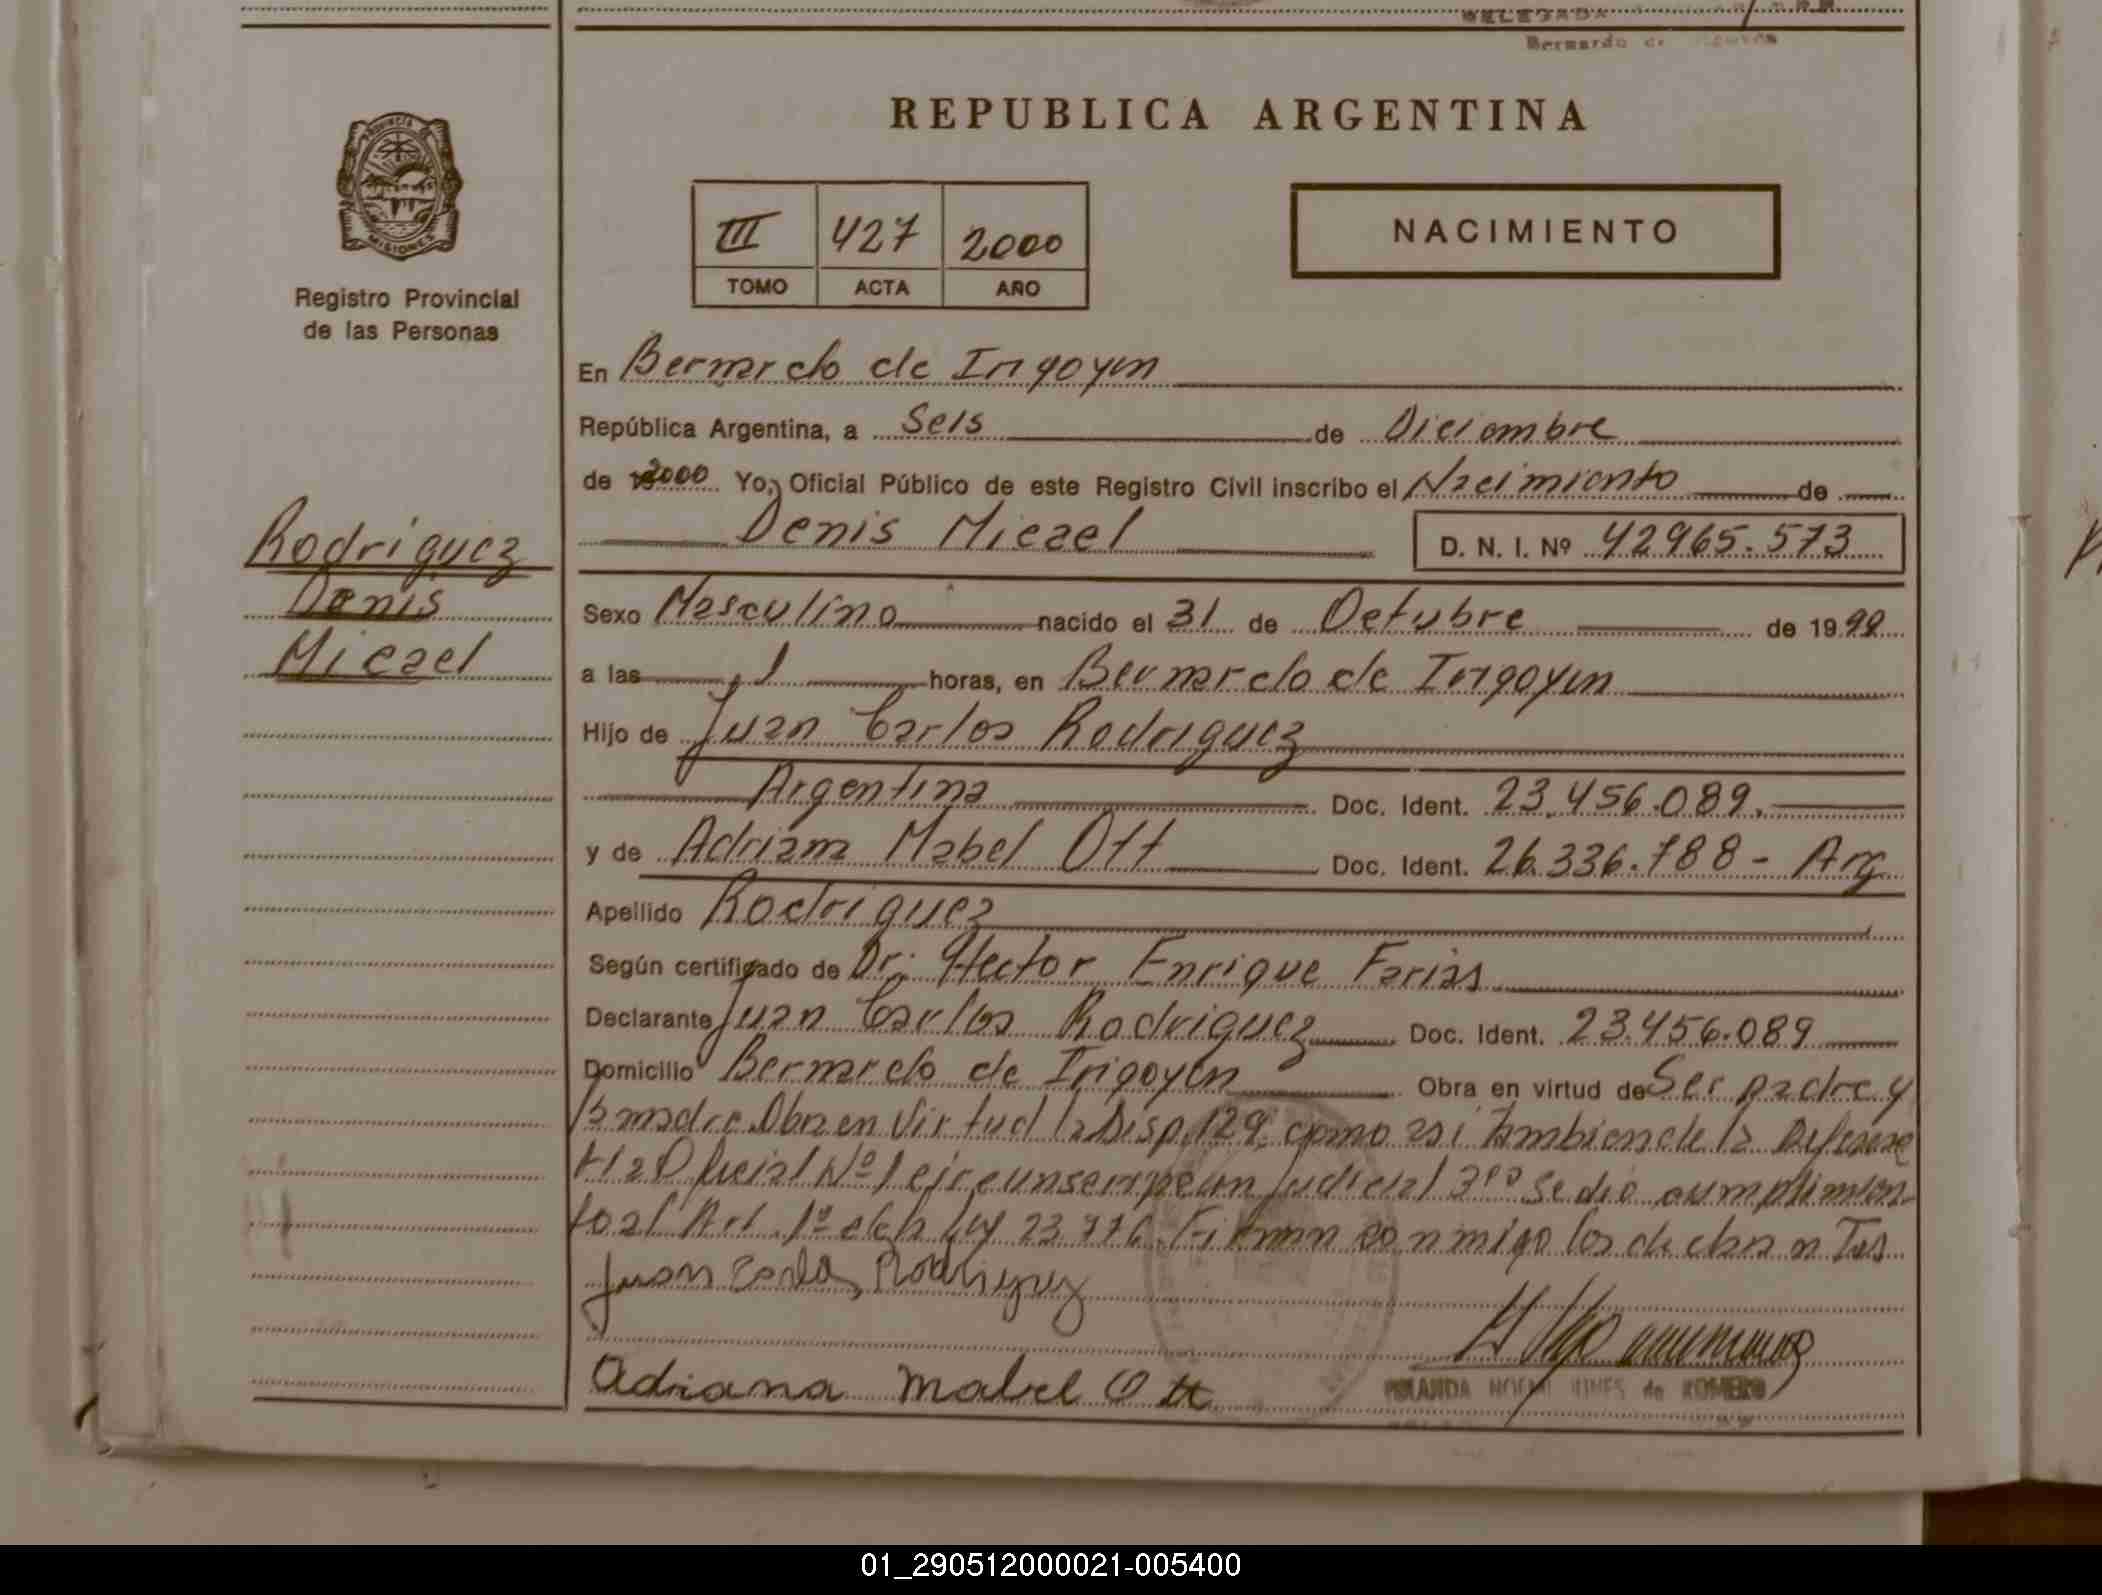 DELEGADA
Bernardo de
REPUBLICA ARGENTINA
PROVINCIA DE MISIONES
III 427 2000
TOMO ACTA AÑO
NACIMIENTO
Registro Provincial
de las Personas
En Bernardo de Irigoyen
República Argentina, a Seis de Diciembre
de 2000 Yo, Oficial Público de este Registro Civil inscribo el Nacimiento de
Denis Micael D. N. I. Nº 42965.573
Rodriguez
Denis
Micael
Sexo Masculino nacido el 31 de Octubre de 1999
a las 1 horas, en Bernardo de Irigoyen
Hijo de Juan Carlos Rodriguez
Argentina Doc. Ident. 23.456.089.
y de Adriana Mabel Ott Doc. Ident. 26.336.788 - Arg
Apellido Rodriguez
Según certificado de Dr: Hector Enrique Farias
Declarante Juan Carlos Rodriguez Doc. Ident. 23.456.089
Domicilio Bernardo de Irigoyen Obra en virtud de Ser padre y
la madre. Obra en Virtud la Disp. 129, como asi tambien de la
Oficial Nº 1 circunscripcion Judicial 3ra Se dió cumplimien-
to al Art. 1º de la Ley 23.776. Firman conmigo los declarantes
Juan Carlos Rodriguez
Adriana Mabel Ott
de ROMERO
01_290512000021-005400